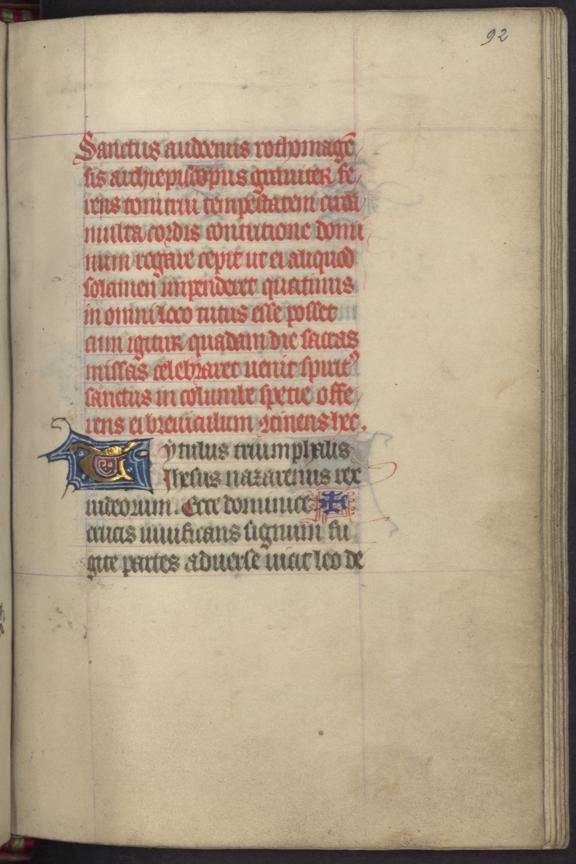 92
Sanctus audoenus rothomagē
sis archiepiscopus grauiter fe
rens tonitrui tempestatem cum
multa cordis contritione domi
num rogare cepit ut ei aliquod
solamen impenderet quatinus
in omni loco tutus esse posset
cum igitur quadam die sacras
missas celebraret uenit spirit᷒
sanctus in columbe specie offe
rens ei breuiculum ꝯtinens hec.
Tytulus triumphalis
Ihesus nazarenus rex
iudeorum. Ecce dominice ✝
crucis uiuificans signum fu
gite partes aduerse uicit leo de